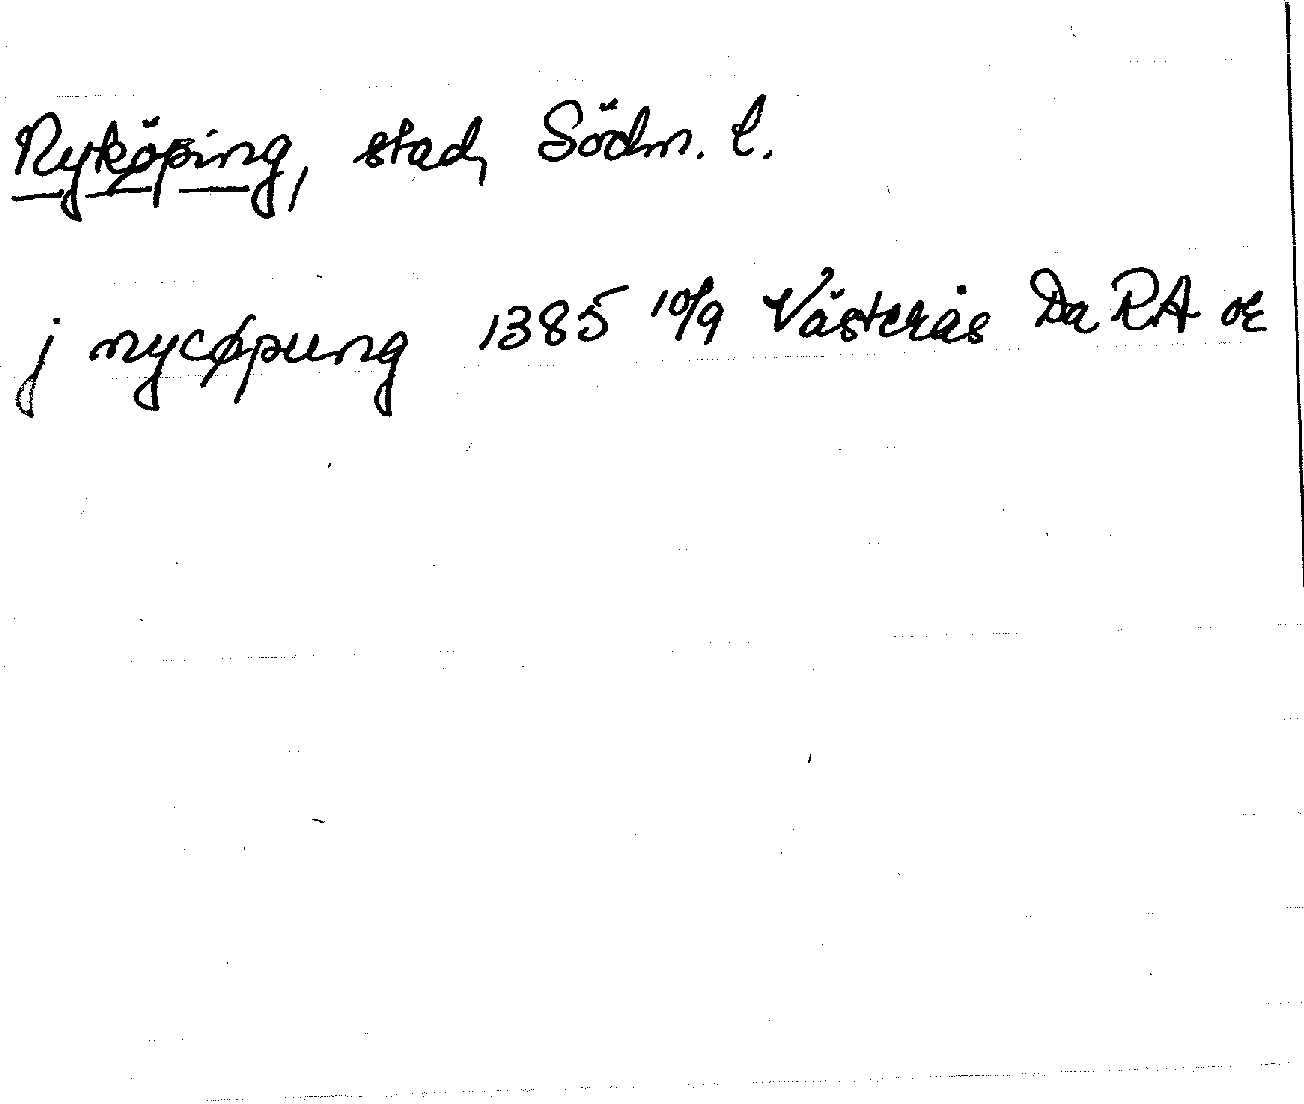 Nyköping, stad, Södm. l.
j nycøpung 1385 10/9 Västerås Da RA or